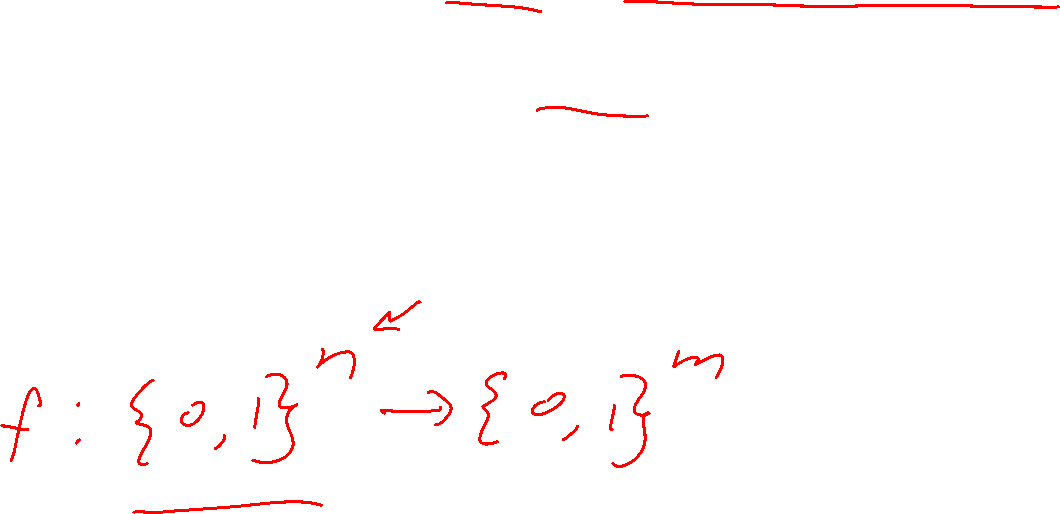 f : {0,1}^n → {0,1}^m